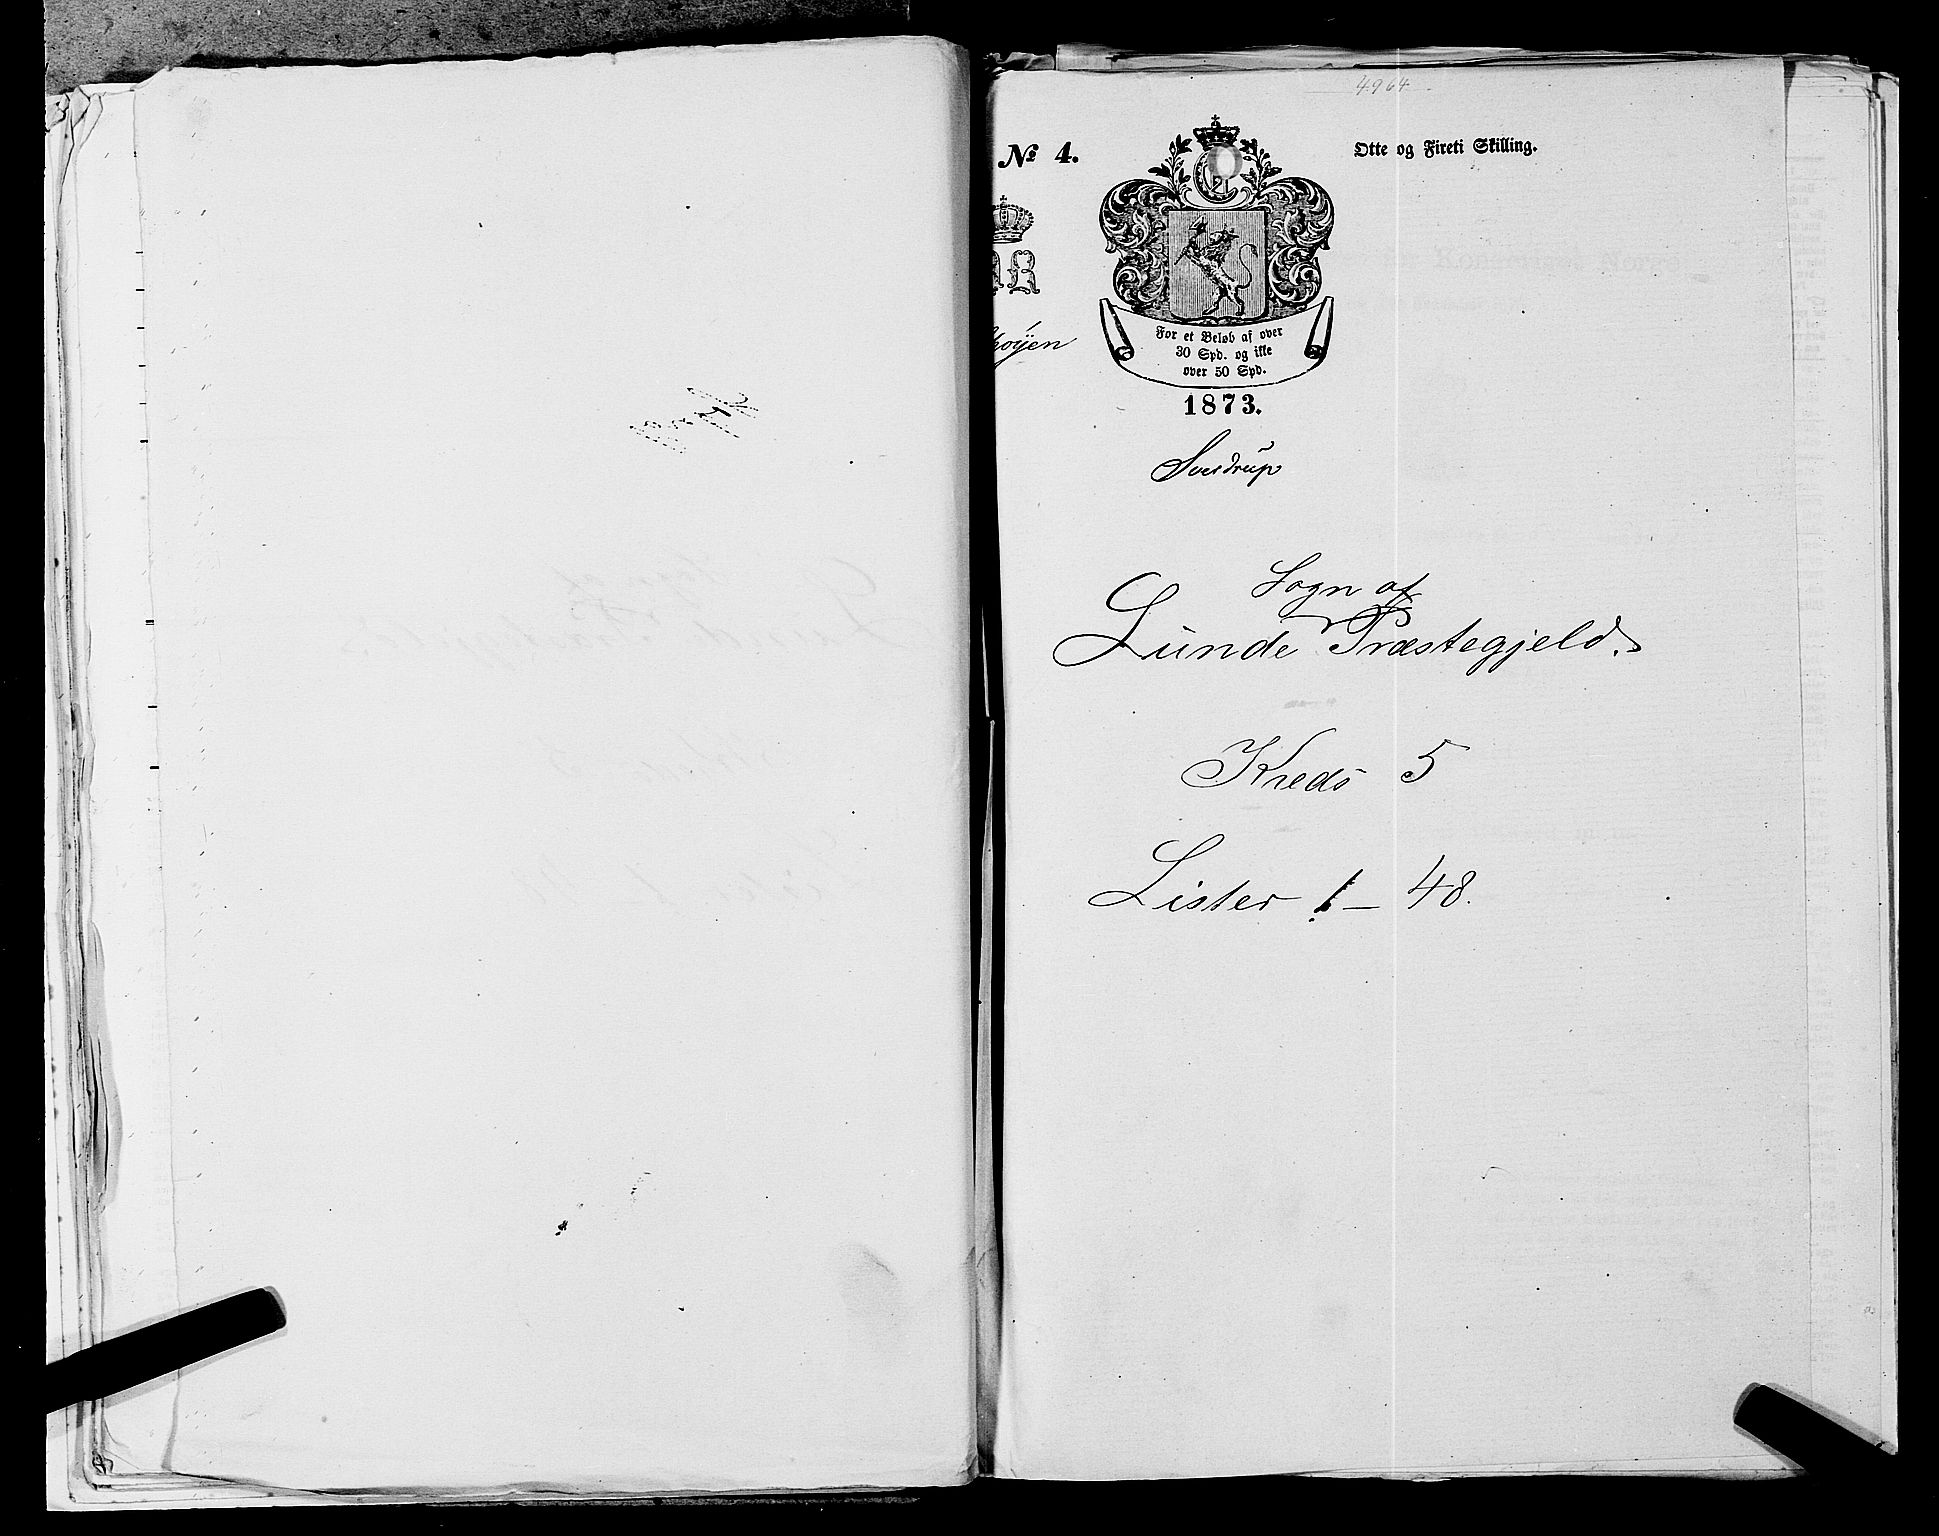 4964
№ 4.
Otte og Fireti Skilling.
For et Beløb af over
30 Spd. og ikke
over 50 Spd.
1873.
Sverdrup
Sogn af
Lunde Præstegjeld.
Kreds 5
Lister 1 – 48.